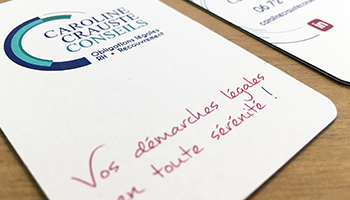 CAROLINE
CRAUSTE
CONSEILS
Obligations légales
RH • Recouvrement
Vos démarches légales
en toute sérénité !
06 72
in